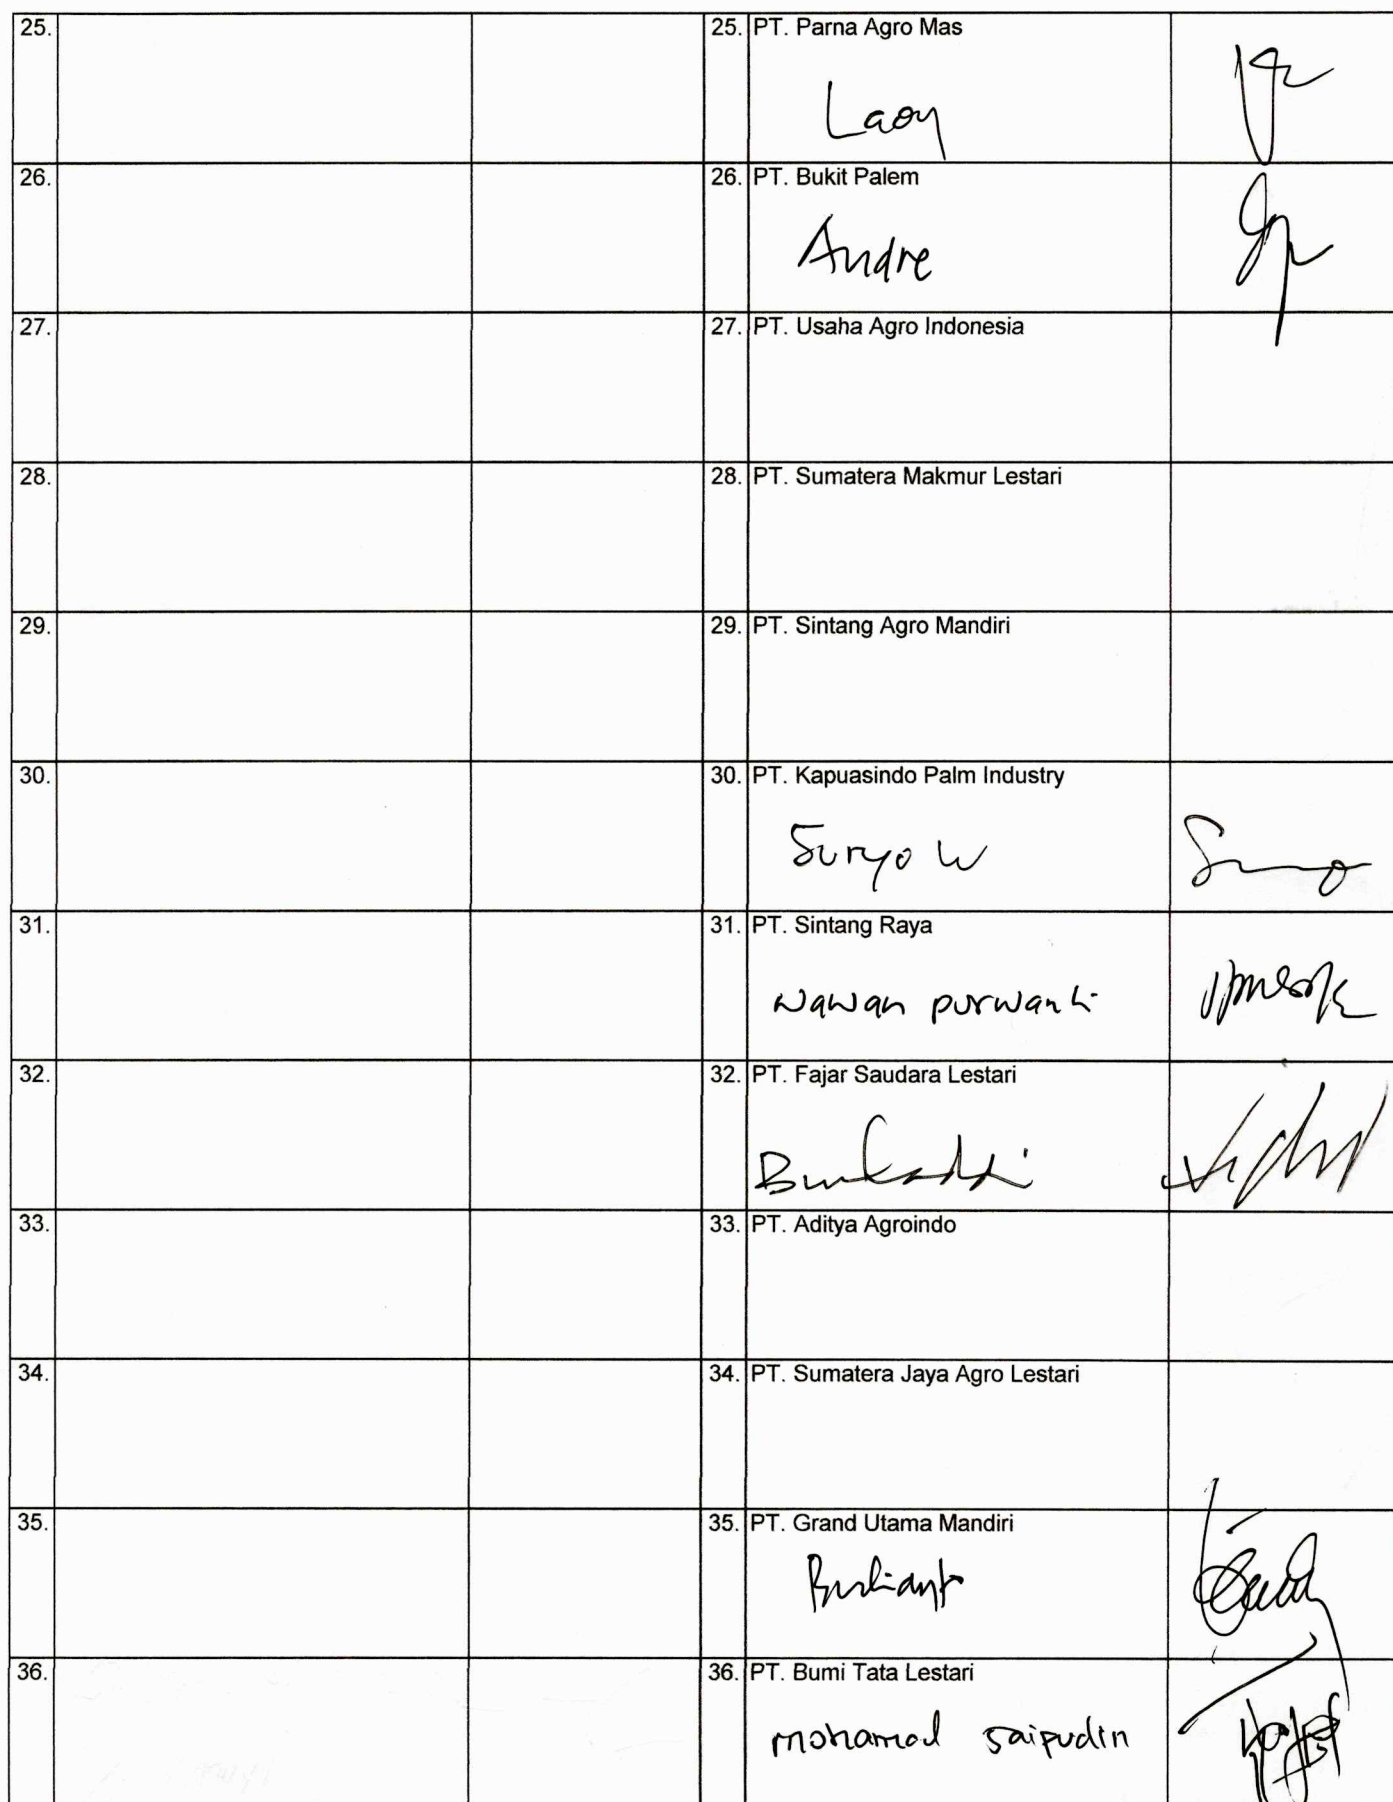 25. 25. PT. Parna Agro Mas
Laoy
26. 26. PT. Bukit Palem
Andre
27. 27. PT. Usaha Agro Indonesia
28. 28. PT. Sumatera Makmur Lestari
29. 29. PT. Sintang Agro Mandiri
30. 30. PT. Kapuasindo Palm Industry
Suryo W
31. 31. PT. Sintang Raya
Wawan purwanti
32. 32. PT. Fajar Saudara Lestari
33. 33. PT. Aditya Agroindo
34. 34. PT. Sumatera Jaya Agro Lestari
35. 35. PT. Grand Utama Mandiri
36. 36. PT. Bumi Tata Lestari
mohamad saipudin